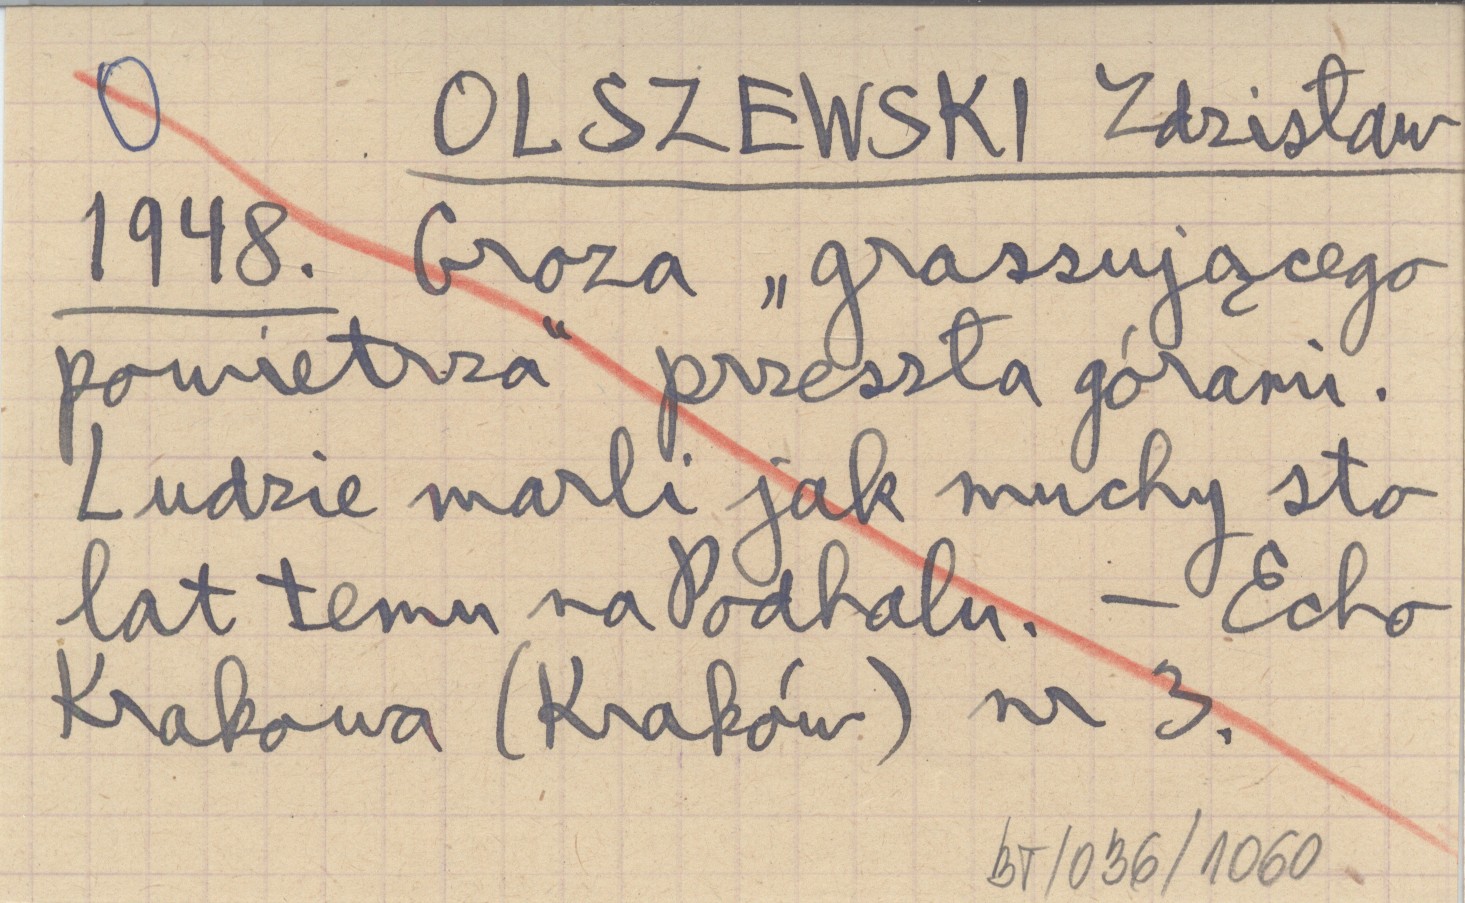 O OLSZEWSKI Zdzisław
1948. Groza „grassującego
powietrza“ przeszła górami.
Ludzie marli jak muchy sto
lat temu na Podhalu. — Echo
Krakowa (Kraków) nr 3.
BT/036/1060